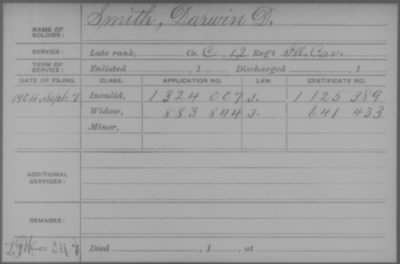 NAME OF SOLDIER: Smith, Darwin D.
SERVICE: Late rank, Co. C, 12 Reg't Ill. Cav.
TERM OF SERVICE: Enlisted , 1 Discharged , 1
DATE OF FILING. CLASS. APPLICATION NO. LAW. CERTIFICATE NO.
1904, Sept. 7 Invalid, 1 324 007 J. 1 125 389
Widow, 883 844 J. 641 433
Minor,
ADDITIONAL SERVICES:
REMARKS:
Died , 1 , at